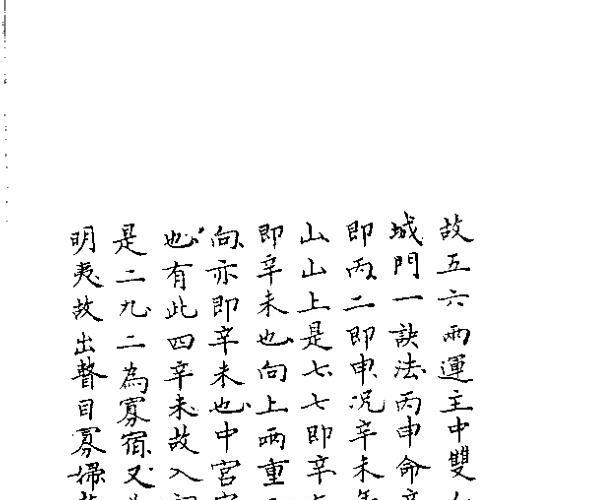 故五六兩運主中雙
城門一訣法丙申命辛
即丙二即申況辛未年
山山上是七七即辛
即辛未也向上兩重
向亦即辛未也中宮
也有此四辛未故入
是二九二為寡宿又
明夷故出瞽目寡婦